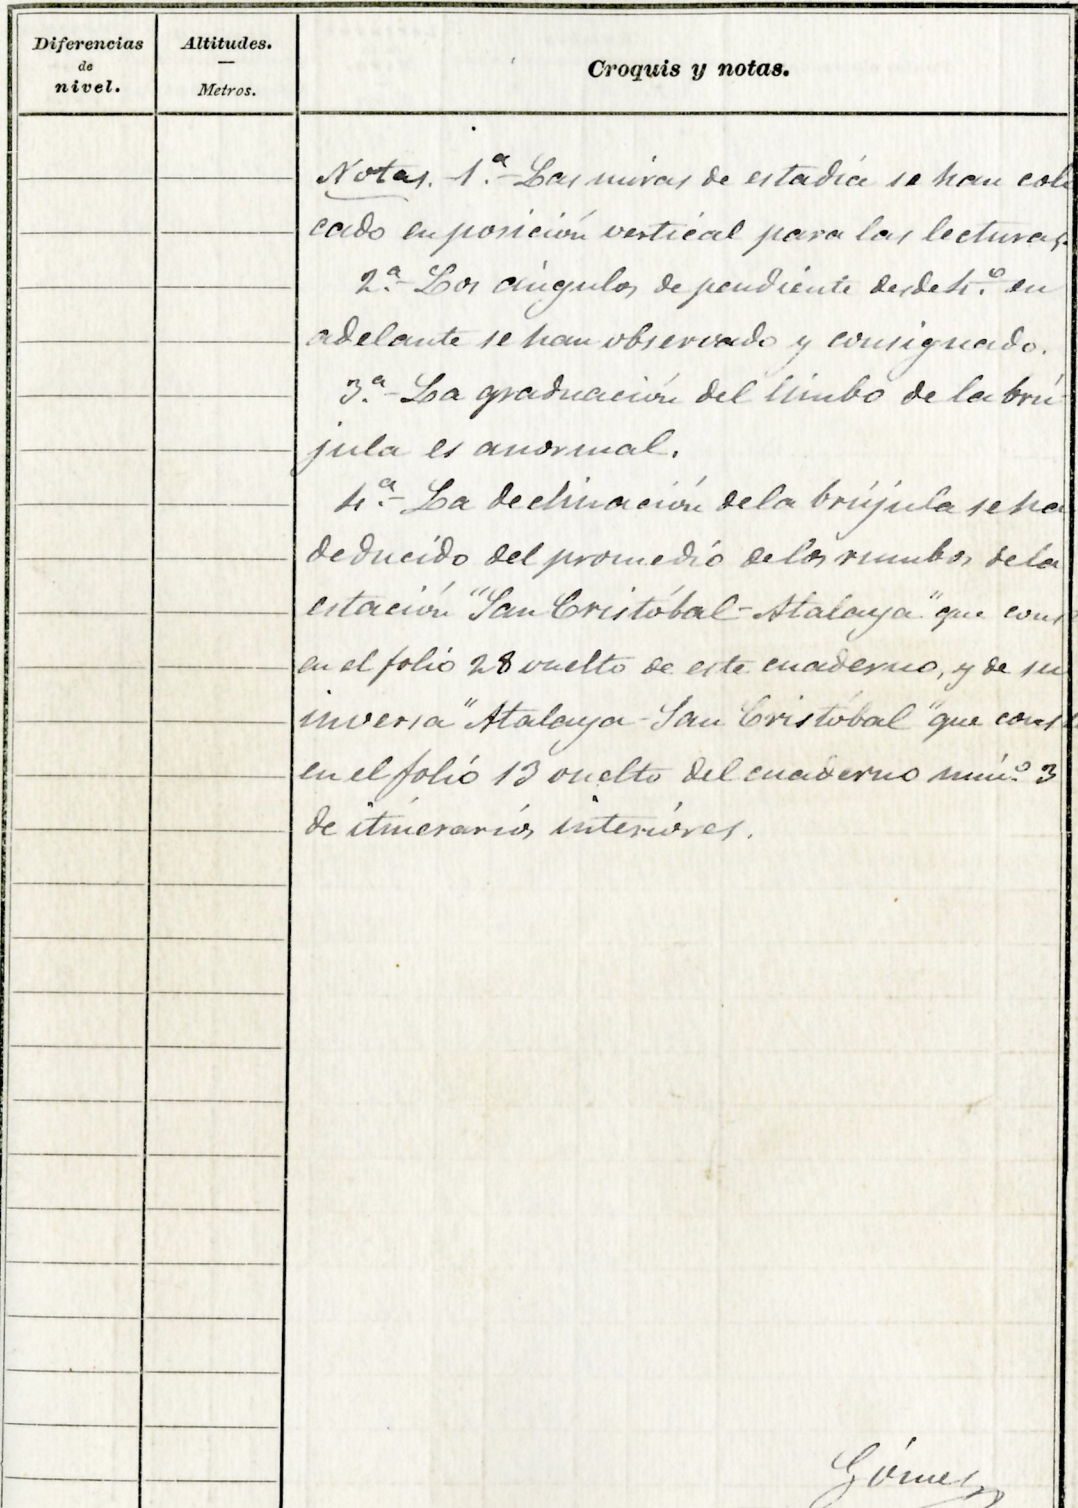 Diferencias
de
nivel.
Altitudes.
Metros.
Croquis y notas.
Notas. 1.ª- Las miras de estadía se han colo
cado en posición vertical para las lecturas.
2.ª- Los ángulos de pendiente desde 4.º en
adelante se han observado y consignado.
3.ª- La graduación del limbo de la brú-
jula es anormal.
4.ª- La declinación de la brújula se ha
deducido del promedio de los rumbos de la
estación "San Cristóbal-Atalaya" que cons
en el folio 28 vuelto de este cuaderno, y de su
inversa "Atalaya-San Cristóbal" que const
en el folio 13 vuelto del cuaderno núm.º 3
de itinerarios interiores.
Gómez